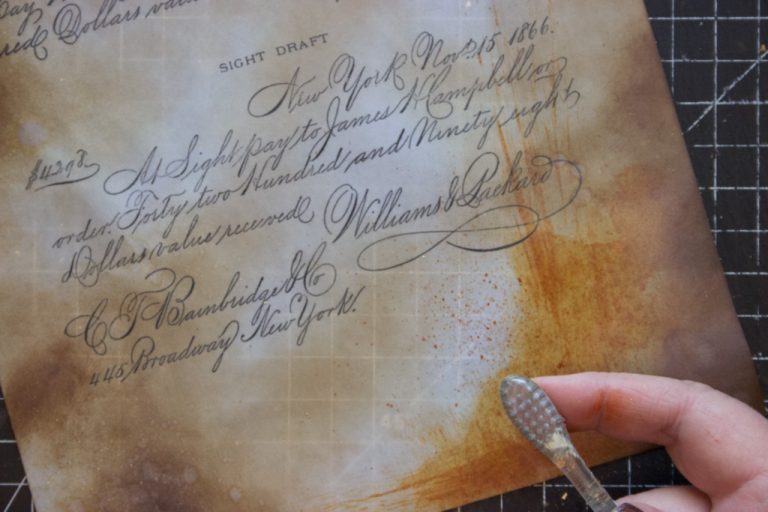 red Dollars valu
SIGHT DRAFT
New York Nov. 15 1866.
$4298. At Sight pay to James H Campbell or
order. Forty two Hundred and Ninety eight
Dollars value received Williams & Packard
C T Bainbridge & Co
445 Broadway New York.